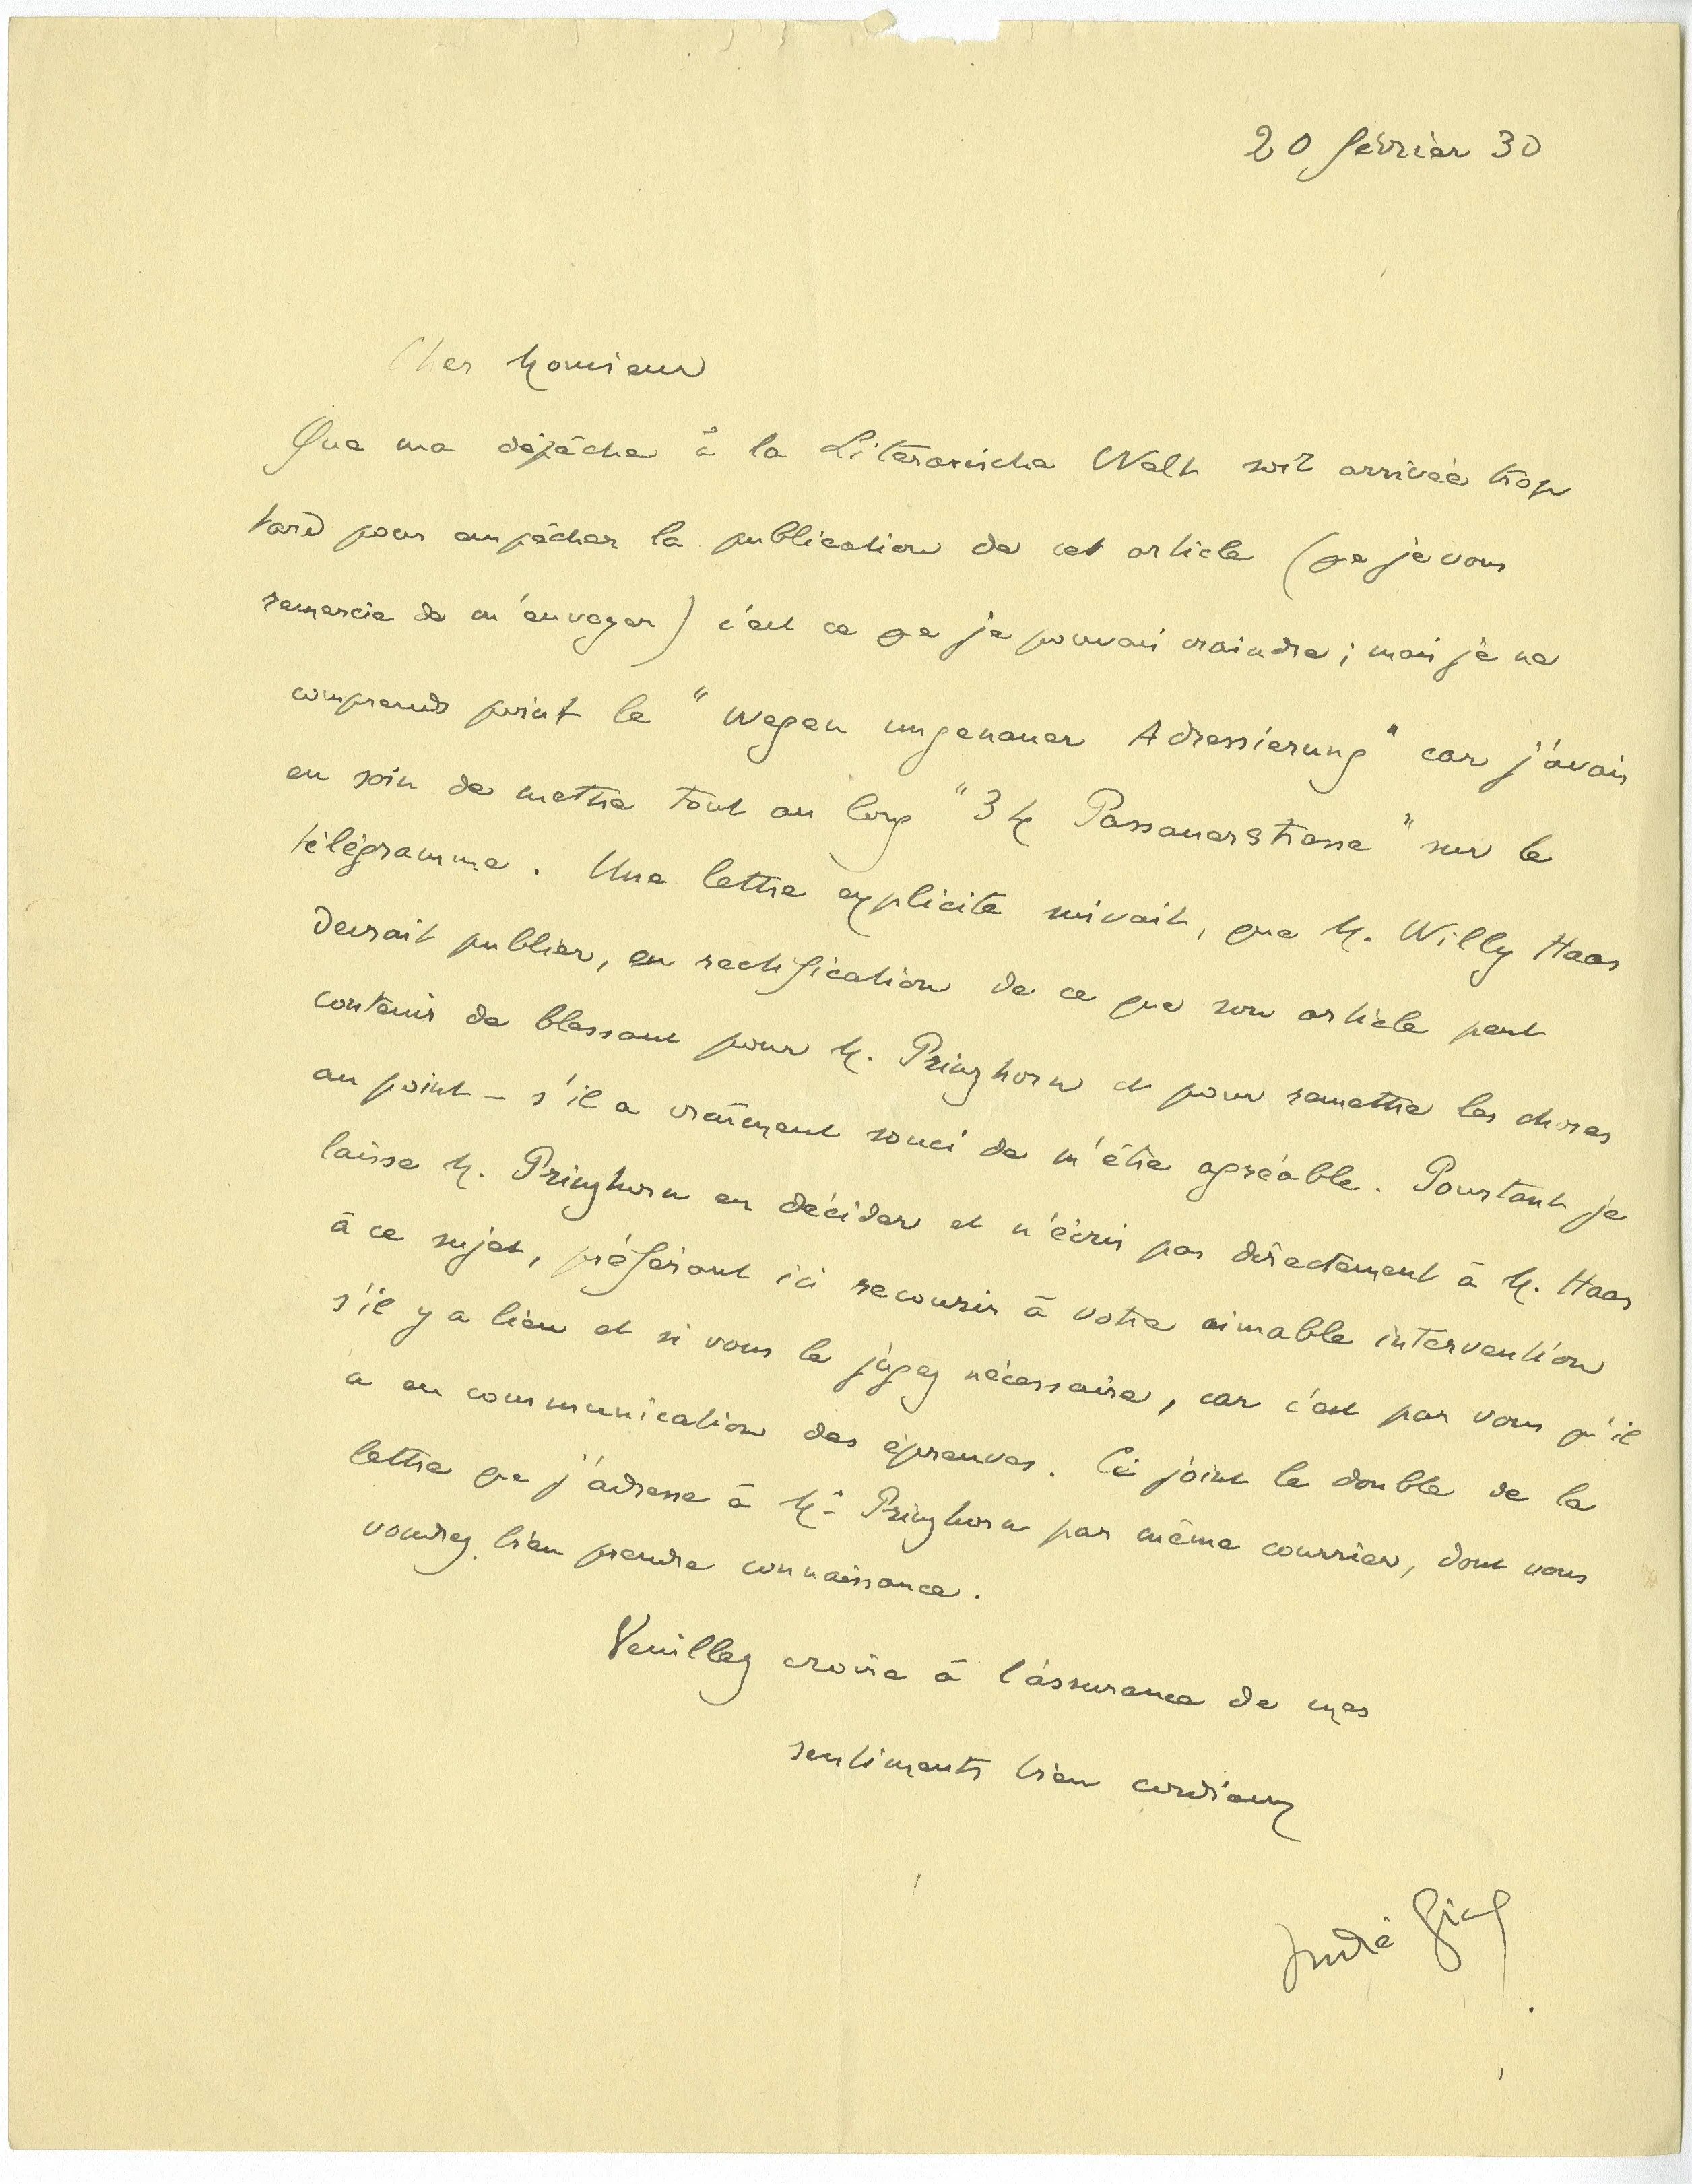 20 février 30
Cher Monsieur
Que ma dépêche à la Literarische Welt soit arrivée trop
tard pour empêcher la publication de cet article (que je vous
remercie de m'envoyer) c'est ce que je pouvais craindre ; mais je ne
comprends point le "wegen ungenauer Adressierung" car j'avais
eu soin de mettre tout au long "34 Passauerstrasse" sur le
télégramme. Une lettre explicite suivait, que M. Willy Haas
devrait publier, en rectification de ce que son article peut
contenir de blessant pour M. Prinzhorn et pour remettre les choses
au point – s'il a vraiment souci de m'être agréable. Pourtant je
laisse M. Prinzhorn en décider et n'écris pas directement à M. Haas
à ce sujet, préférant ici recourir à votre aimable intervention
s'il y a lieu et si vous le jugez nécessaire, car c'est par vous qu'il
a eu communication des épreuves. Ci joint le double de la
lettre que j'adresse à Mr Prinzhorn par même courrier, dont vous
voudrez bien prendre connaissance.
Veuillez croire à l'assurance de mes
sentiments bien cordiaux
André Gide